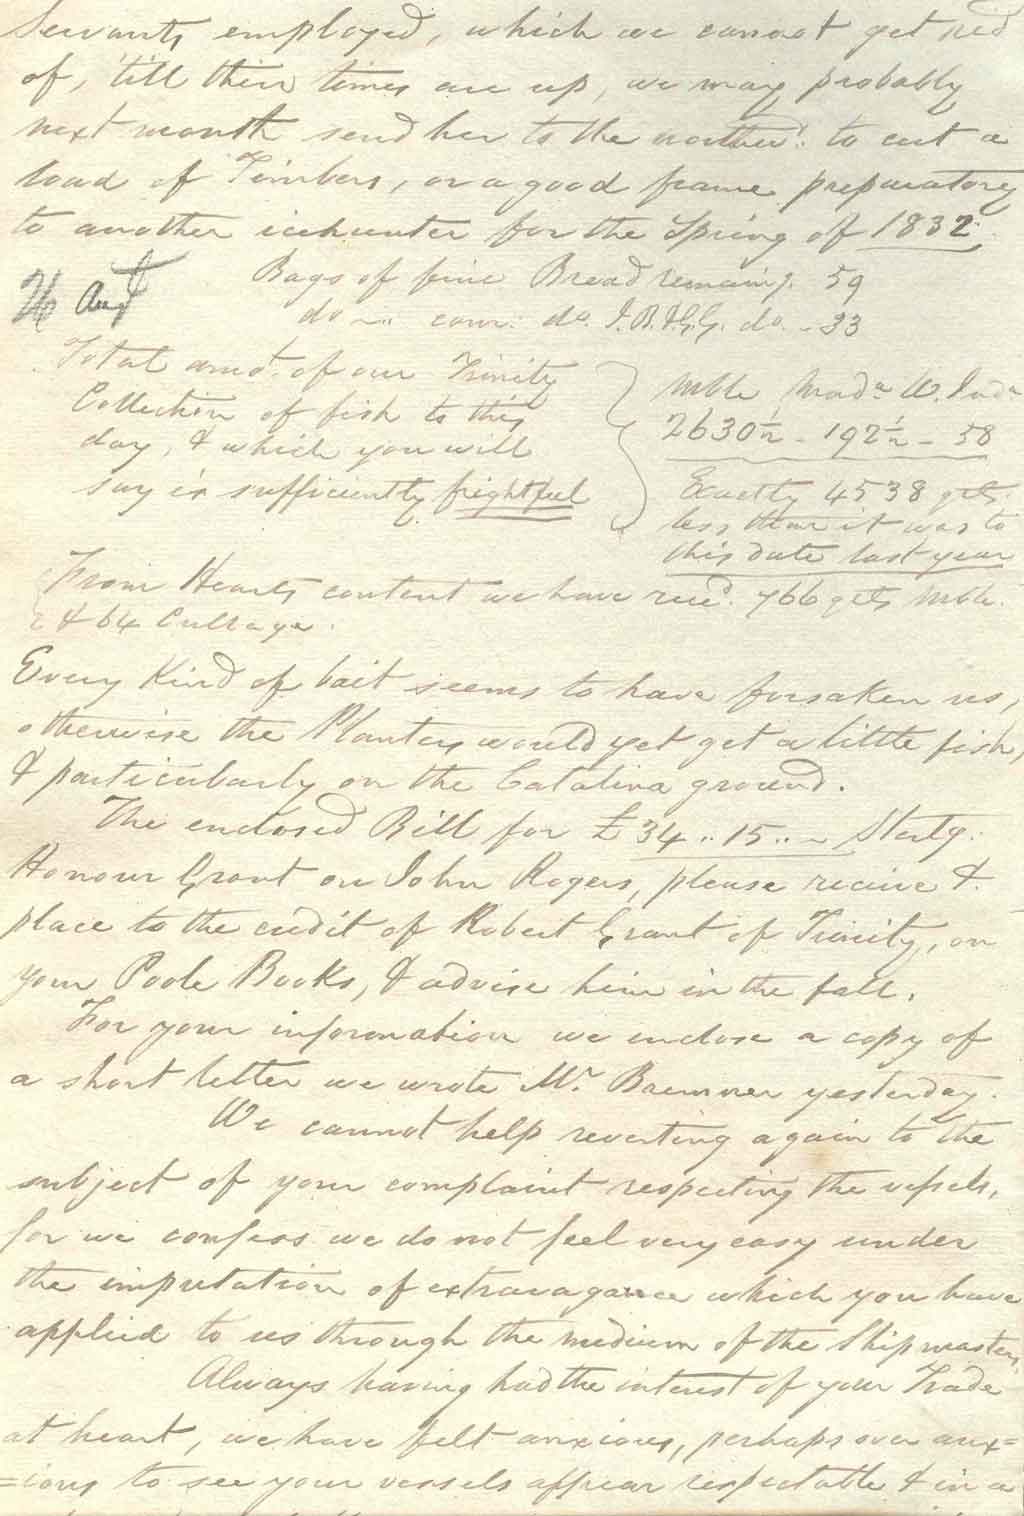 Servants employed, which we cannot get rid
of, 'till their times are up, we may probably
next month send her to the northwd. to cut a
load of Timbers, or a good frame preparatory
to another icehunter for the Spring of 1832.
Bags of fine Bread remaing. 59
26 Augt
do ~.. com: do. J.B.&G.G. do. - 33
Total amot. of our Trinity
Collection of fish to this
day, & which you will
say is sufficiently frightful
Mble Mada W. Inda
2630 1/2 - 192 1/2 - 58
Exactly 4538 qtls
less than it was to
this date last year
From Hearts content we have recd. 766 qtls Mble.
& 64 Cullage.
Every Kind of bait seems to have forsaken us,
otherwise the Planters would yet get a little fish,
& particularly on the Catalina ground.
The enclosed Bill for £34..15..~ Sterlg.
Honour Grant on John Rogers, please recieve &
place to the credit of Robert Grant of Trinity, on
your Poole Books, & advise him in the fall.
For your information we enclose a copy of
a short letter we wrote Mr Bremner yesterday.
We cannot help reverting again to the
subject of your complaint respecting the vessels,
for we confess we do not feel very easy under
the imputation of extravagance which you have
applied to us through the medium of the Shipmasters.
Always having had the interest of your Trade
at heart, we have felt anxious, perhaps over anx=
=ious to see your vessels appear respectable & in a